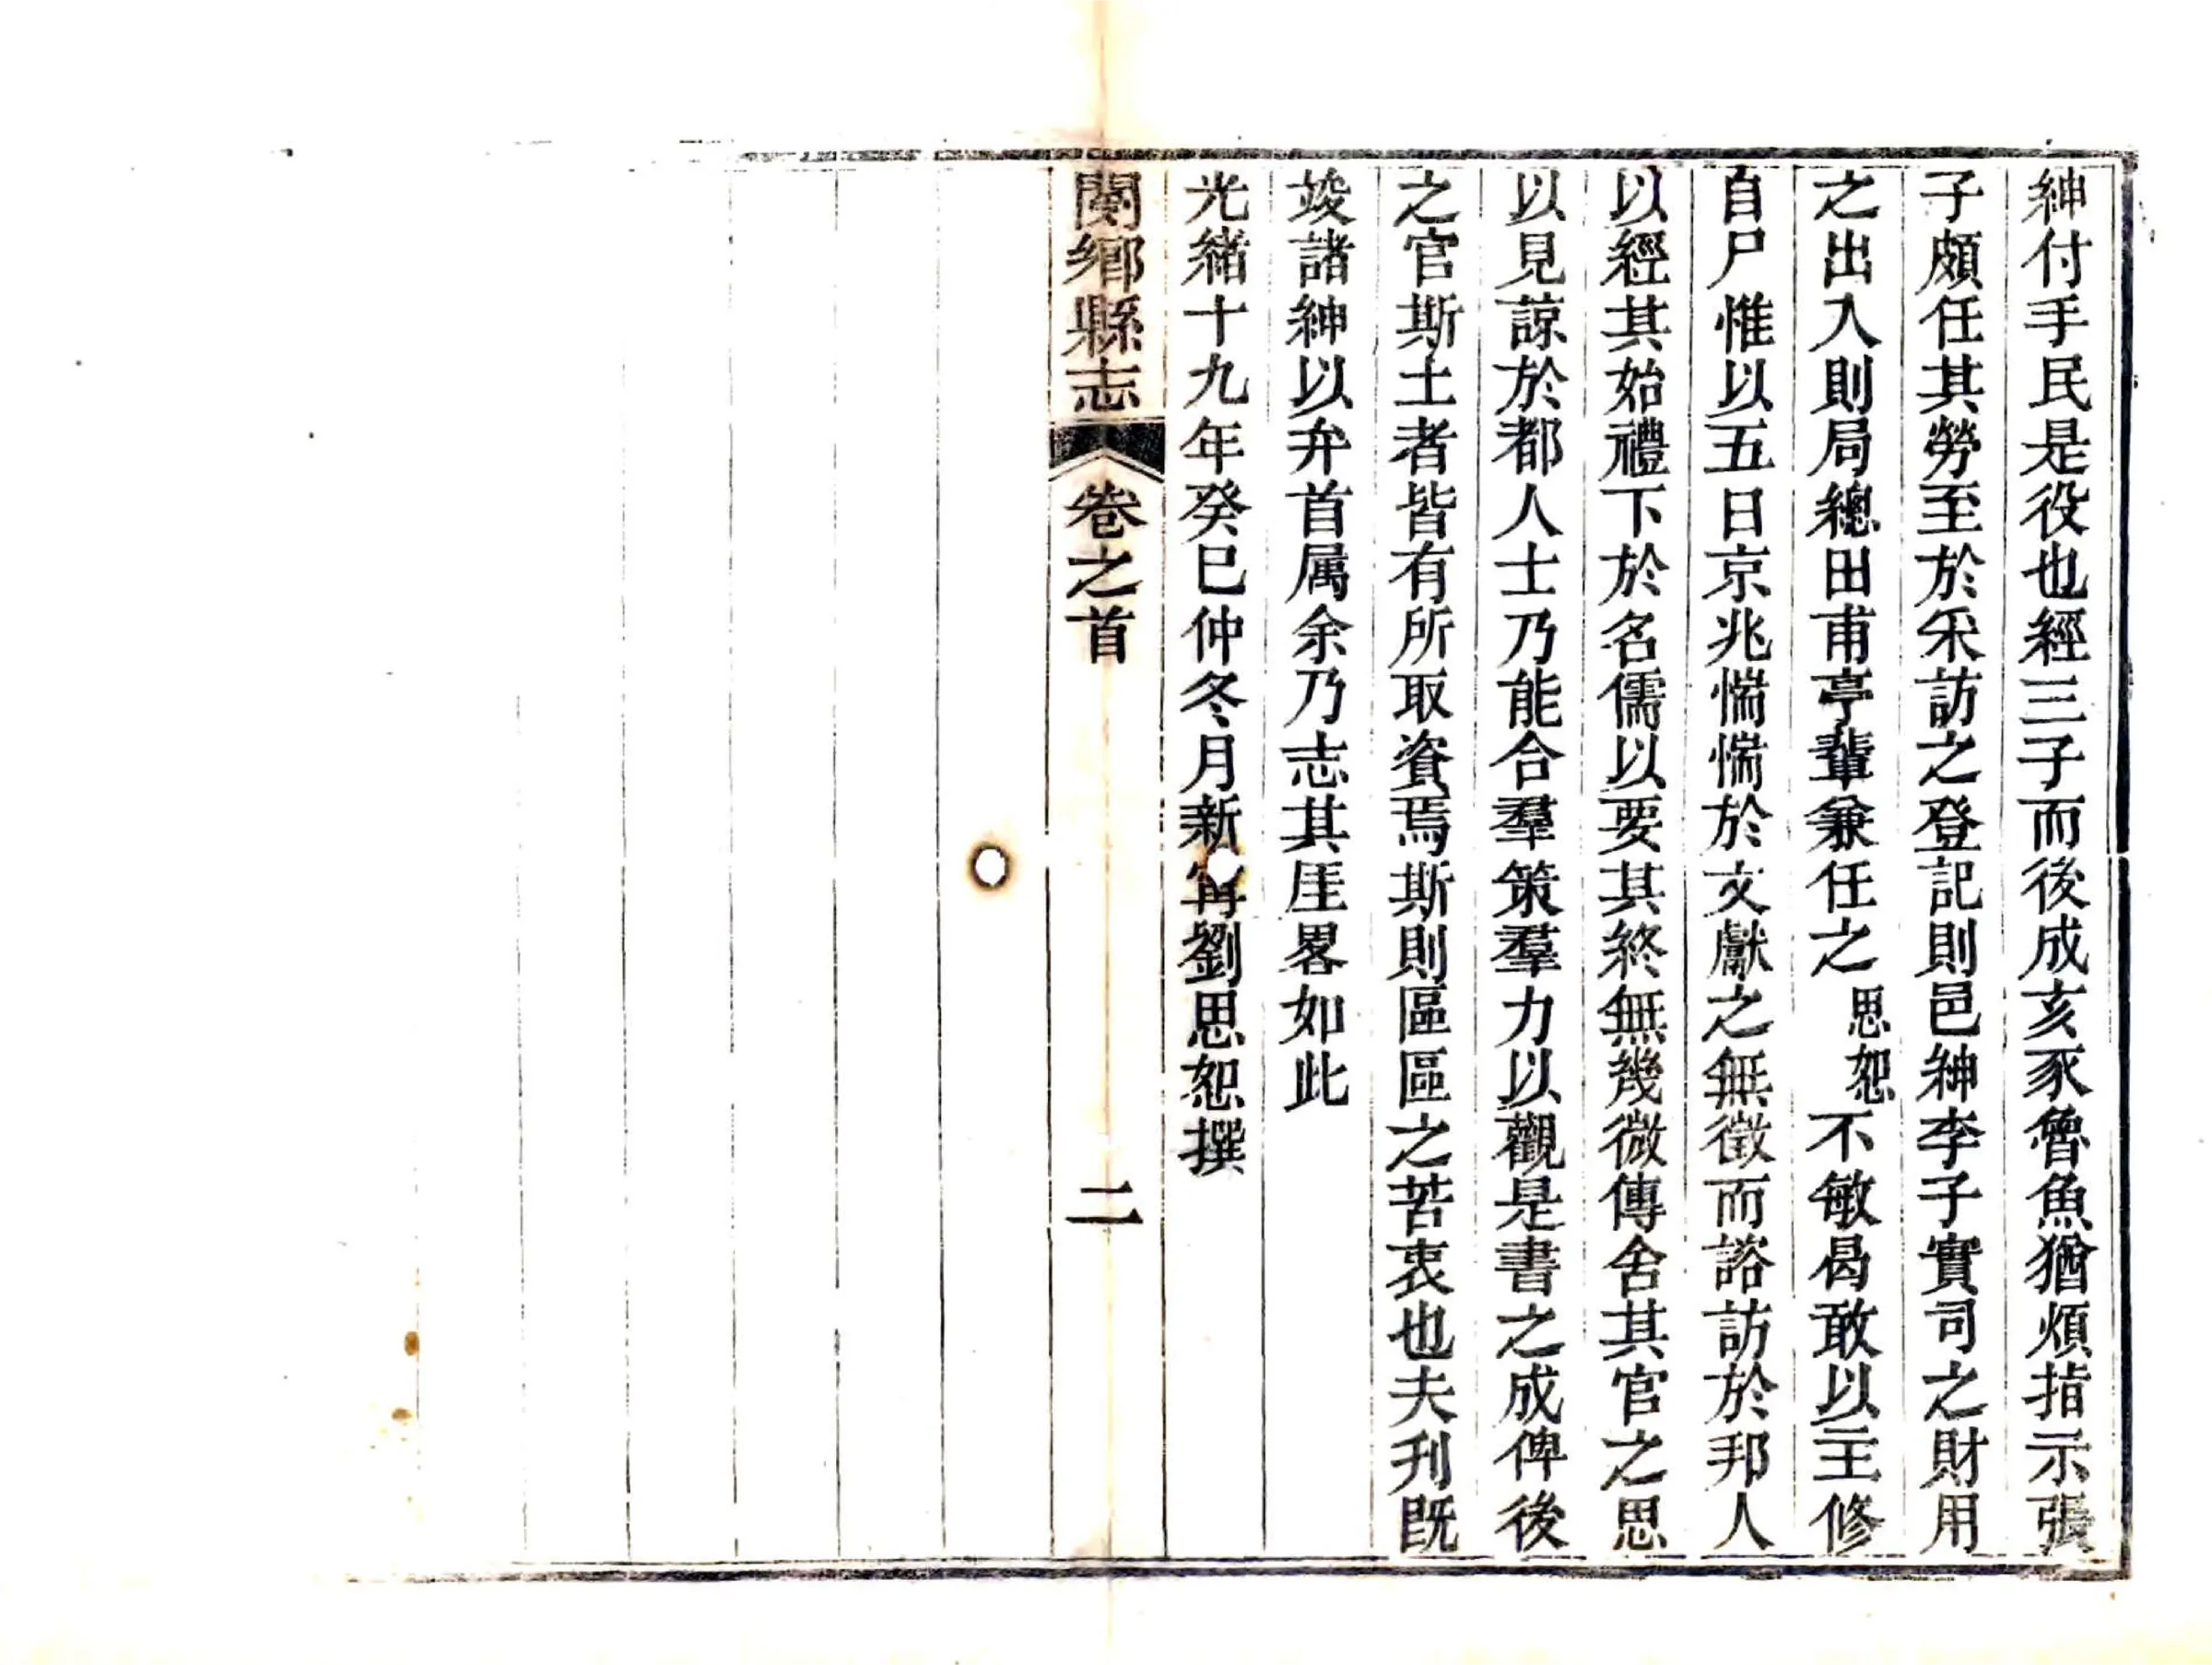 紳付手民是役也經三子而後成亥豕魯魚猶煩指示張
子頗任其勞至於采訪之登記則邑紳李子實司之財用
之出入則局總田甫亭輩兼任之思恕不敏曷敢以主修
自尸惟以五日京兆惴惴於文獻之無徵而諮訪於邦人
以經其始禮下於名儒以要其終無幾微傳舍其官之思
以見諒於都人士乃能合羣策羣力以觀是書之成俾後
之官斯土者皆有所取資焉斯則區區之苦衷也夫刋既
竣諸紳以弁首属余乃志其厓畧如此
光緒十九年癸巳仲冬月新甯劉思恕撰
閿鄉縣志 卷之首 二